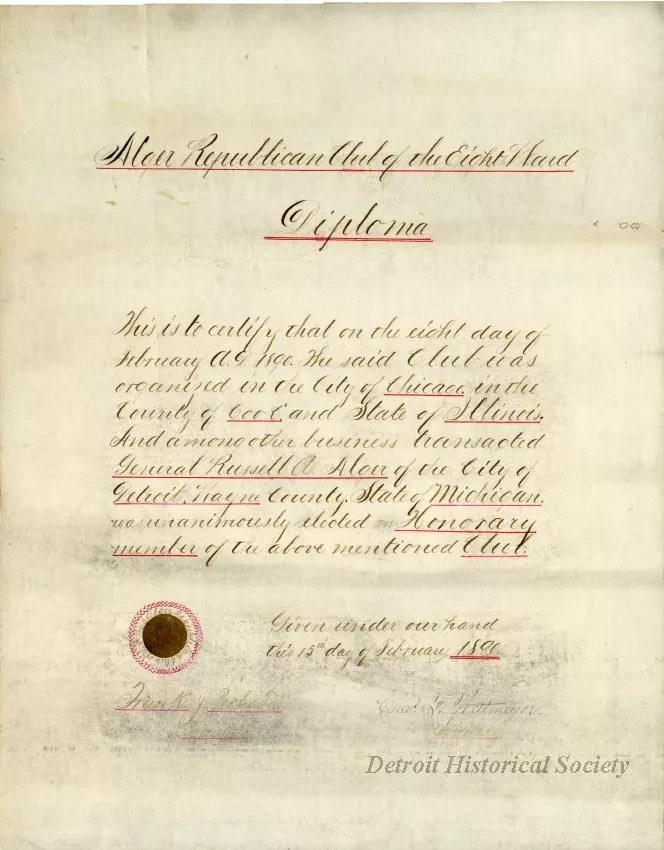 Alger Republican Club of the Eight Ward
Diploma
This is to certify that on the eight day of
February A.D. 1890. The said Club was
organized in the City of Chicago, in the
County of Cook and State of Illinois.
And among other business transacted
General Russell A Alger of the City of
Detroit, Wayne County, State of Michigan,
was unanimously elected an Honorary
member of the above mentioned Club.
Given under our hand
this 15th day of February 1890.
Frank J.
Chas F.
Detroit Historical Society